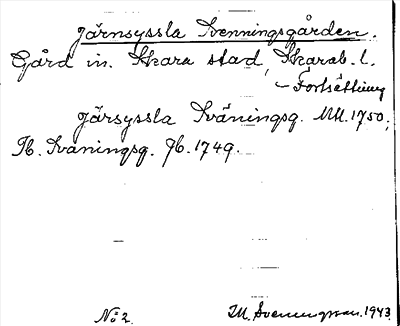 Järnsyssla Svenningsgården.
Gård in. Skara stad, Skarab. l.
– Fortsättning
Järsyssla Sväningsg. Mtl. 1750,
Ib. Svaningsg. Jb. 1749.
No 2.
M. Svenungsson. 1943.